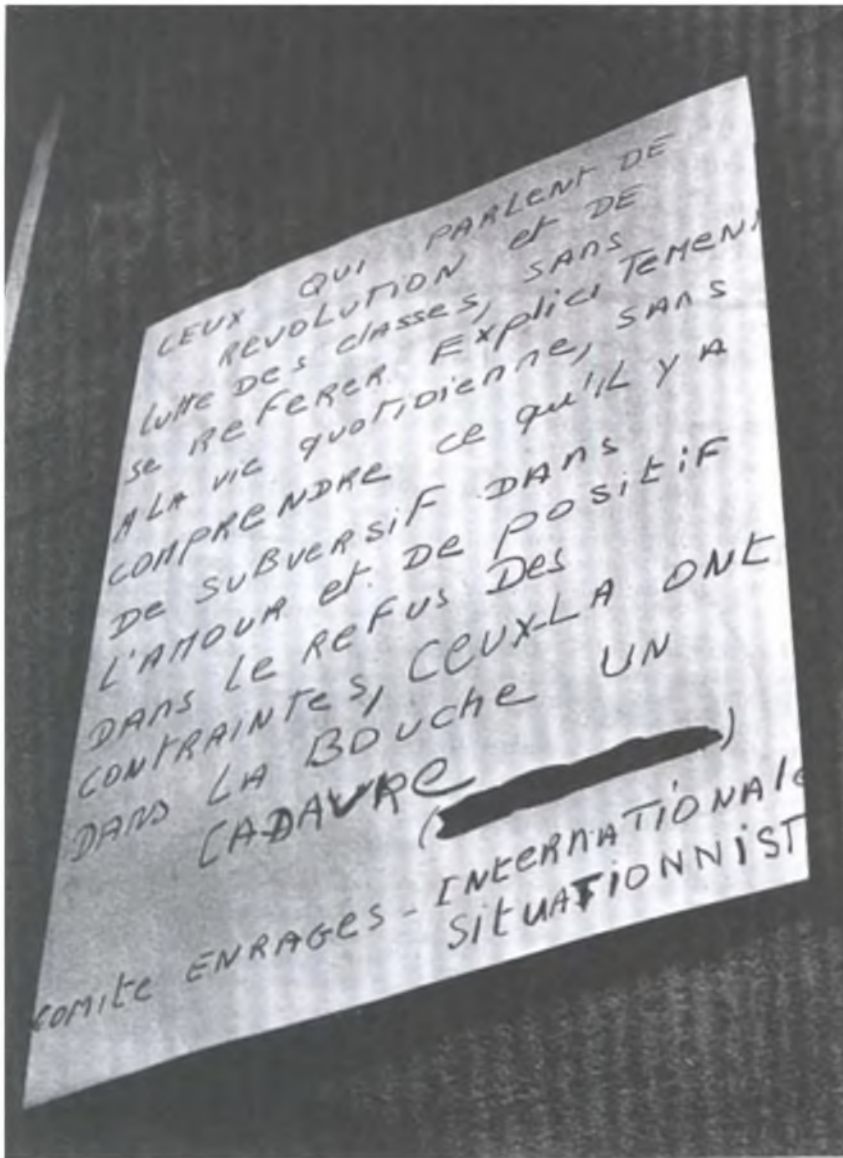 CEUX QUI PARLENT DE
REVOLUTION et DE
lutte DES classes, SANS
se REFERER EXpliciTEMENT
A LA vie quotidienne, SANS
COMPRENDRE ce qu'IL Y A
DE SUBVERSIF DANS
L'AMOUR et DE POSITIF
DANS Le REFUS Des
CONTRAINtes, CEUX-LA ONt
DANS LA BOUche UN
CADAVRe ( )
COMIte ENRAGES - INteRNATIONALe
SItUATIONNIST